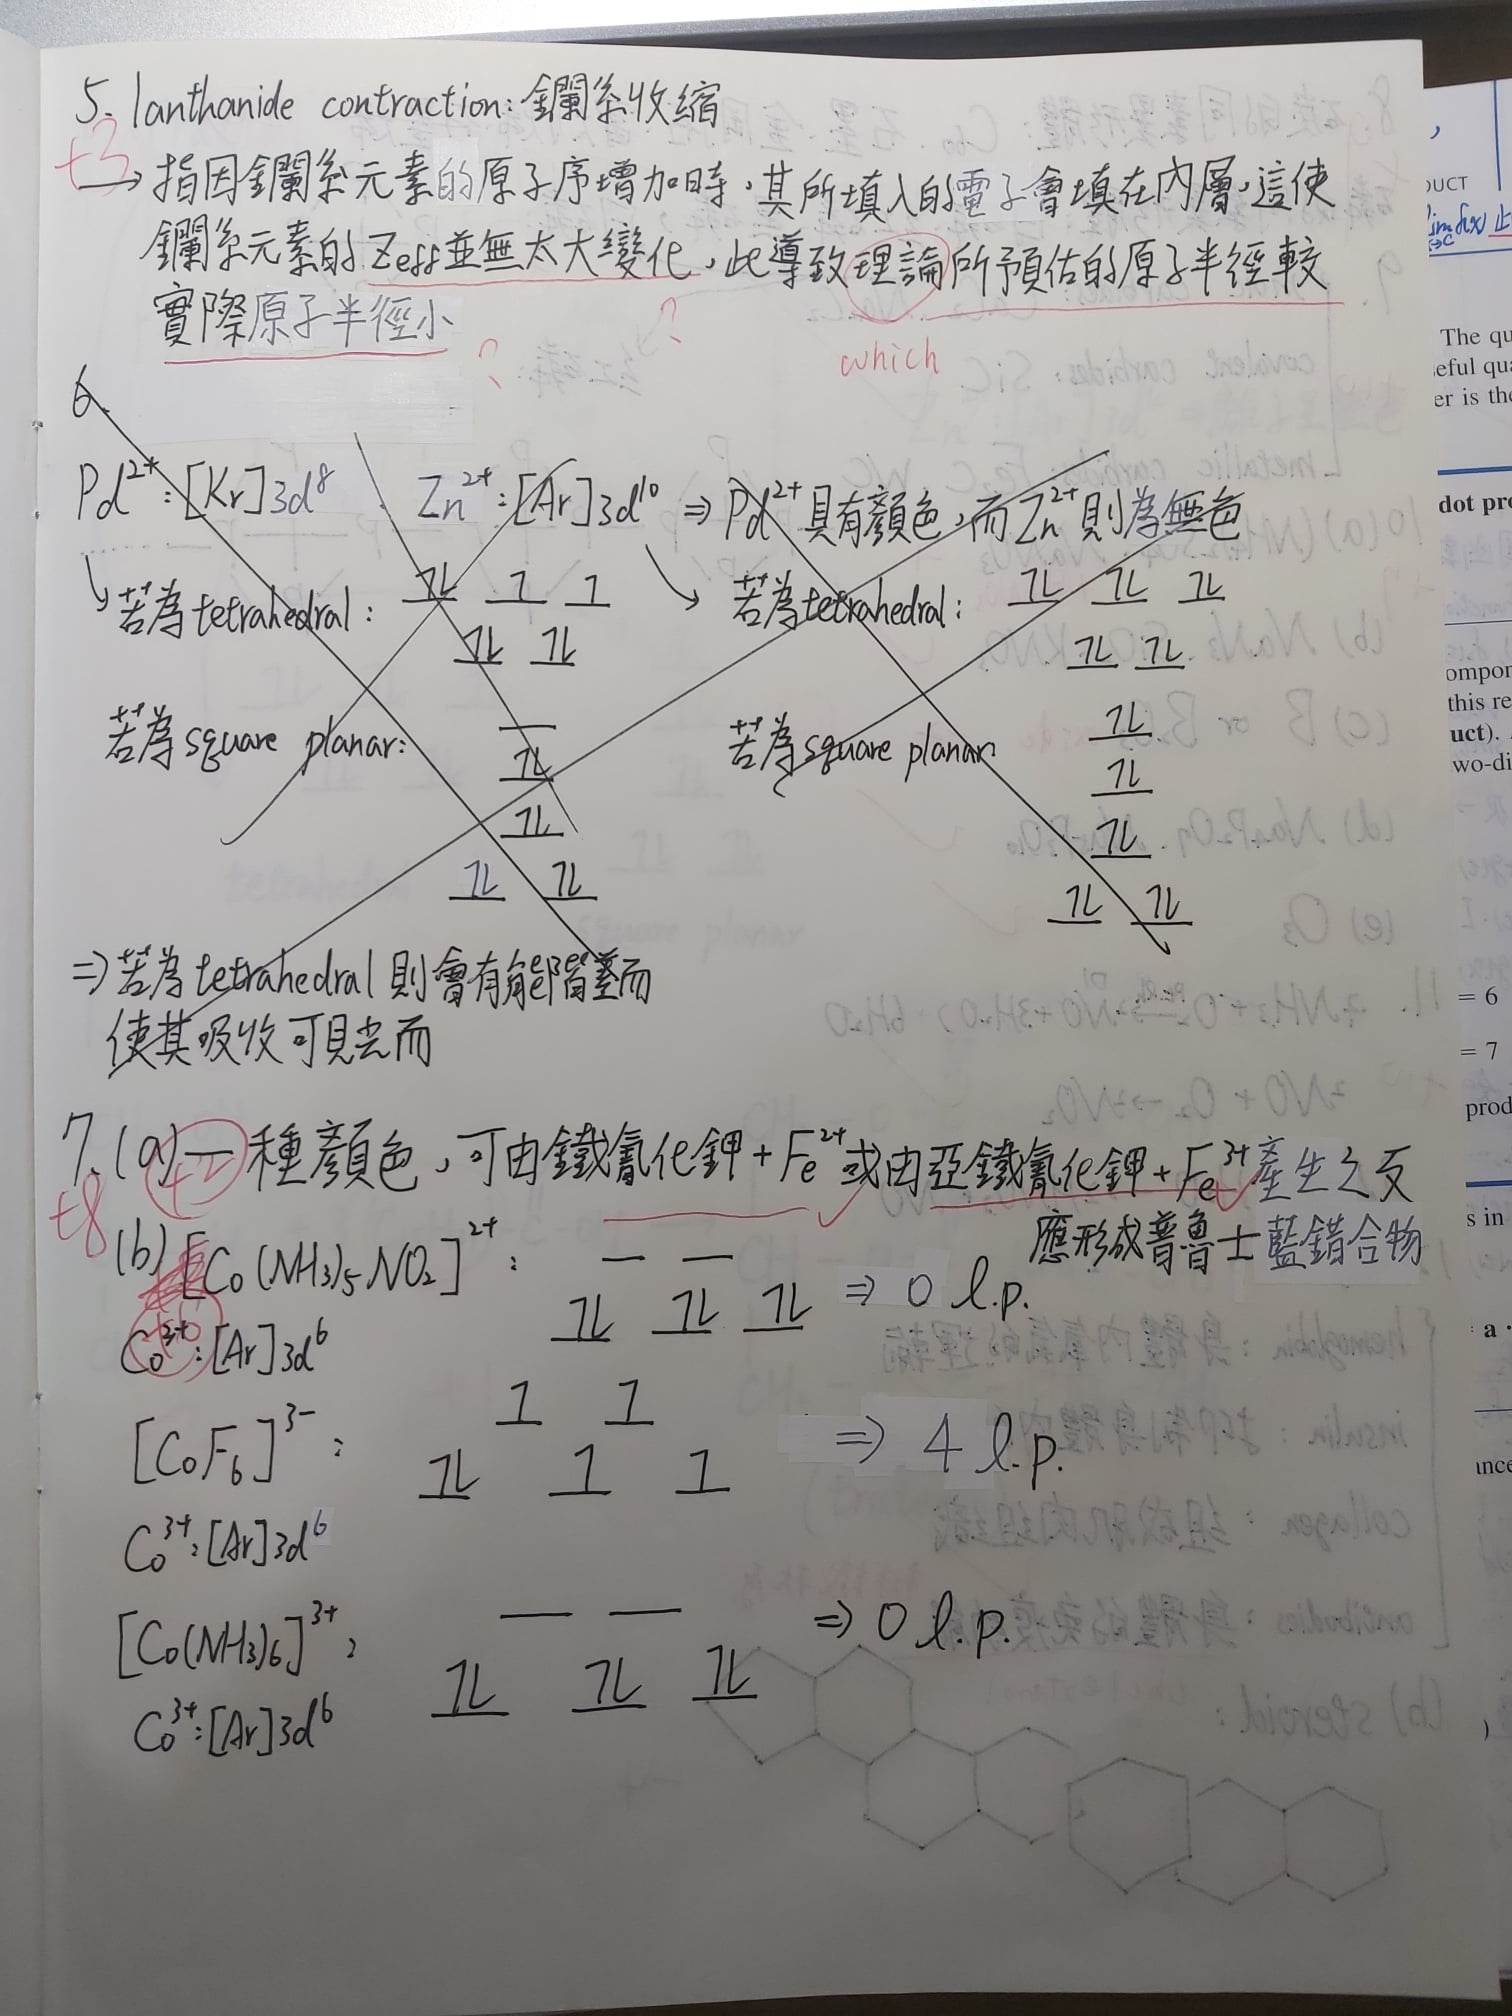 5. lanthanide contraction: 鑭系收縮
+3
→ 指因鑭系元素的原子序增加時,其所填入的電子會填在內層,這使
鑭系元素的 Zeff並無太大變化,此導致理論所預估的原子半徑較
實際原子半徑小
? ?
which
6.
Pd²⁺:[Kr]3d⁸ Zn²⁺:[Ar]3d¹⁰ ⇒ Pd²⁺具有顏色,而Zn²⁺則為無色
若為tetrahedral: 若為tetrahedral:
若為square planar: 若為square planar:
⇒ 若為tetrahedral則會有能階差而
使其吸收可見光而
7. (a) 一種顏色,可由鐵氰化鉀+Fe²⁺或由亞鐵氰化鉀+Fe³⁺產生之反
應形成普魯士藍錯合物
+2
+8
(b) [Co(NH₃)₅NO₂]²⁺: ⇒ 0 l.p.
+6
Co³⁺:[Ar]3d⁶
[CoF₆]³⁻: ⇒ 4 l.p.
Co³⁺:[Ar]3d⁶
[Co(NH₃)₆]³⁺: ⇒ 0 l.p.
Co³⁺:[Ar]3d⁶
DUCT
The qu
eful qua
er is the
dot pro
ompon
this re
uct).
wo-di
= 6
= 7
prod
s in
a
ance